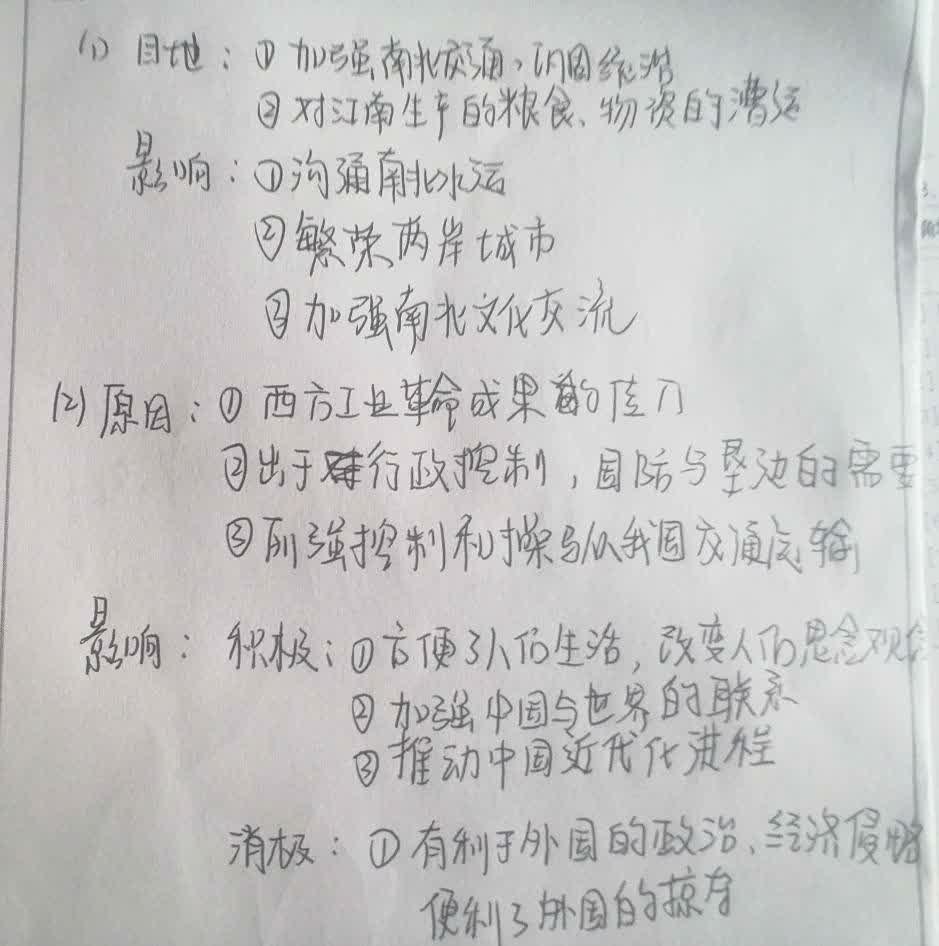 (1) 目地：①加强南北交通，巩固统治
②对江南生产的粮食、物资的漕运
影响：①沟通南北水运
②繁荣两岸城市
③加强南北文化交流
(2) 原因：①西方工业革命成果的传入
②出于行政控制，国防与垦边的需要
③列强控制和操纵我国交通运输
影响：积极：①方便了人们生活，改变人们思念观
②加强中国与世界的联系
③推动中国近代化进程
消极：①有利于外国的政治、经济侵略
便利了外国的掠夺